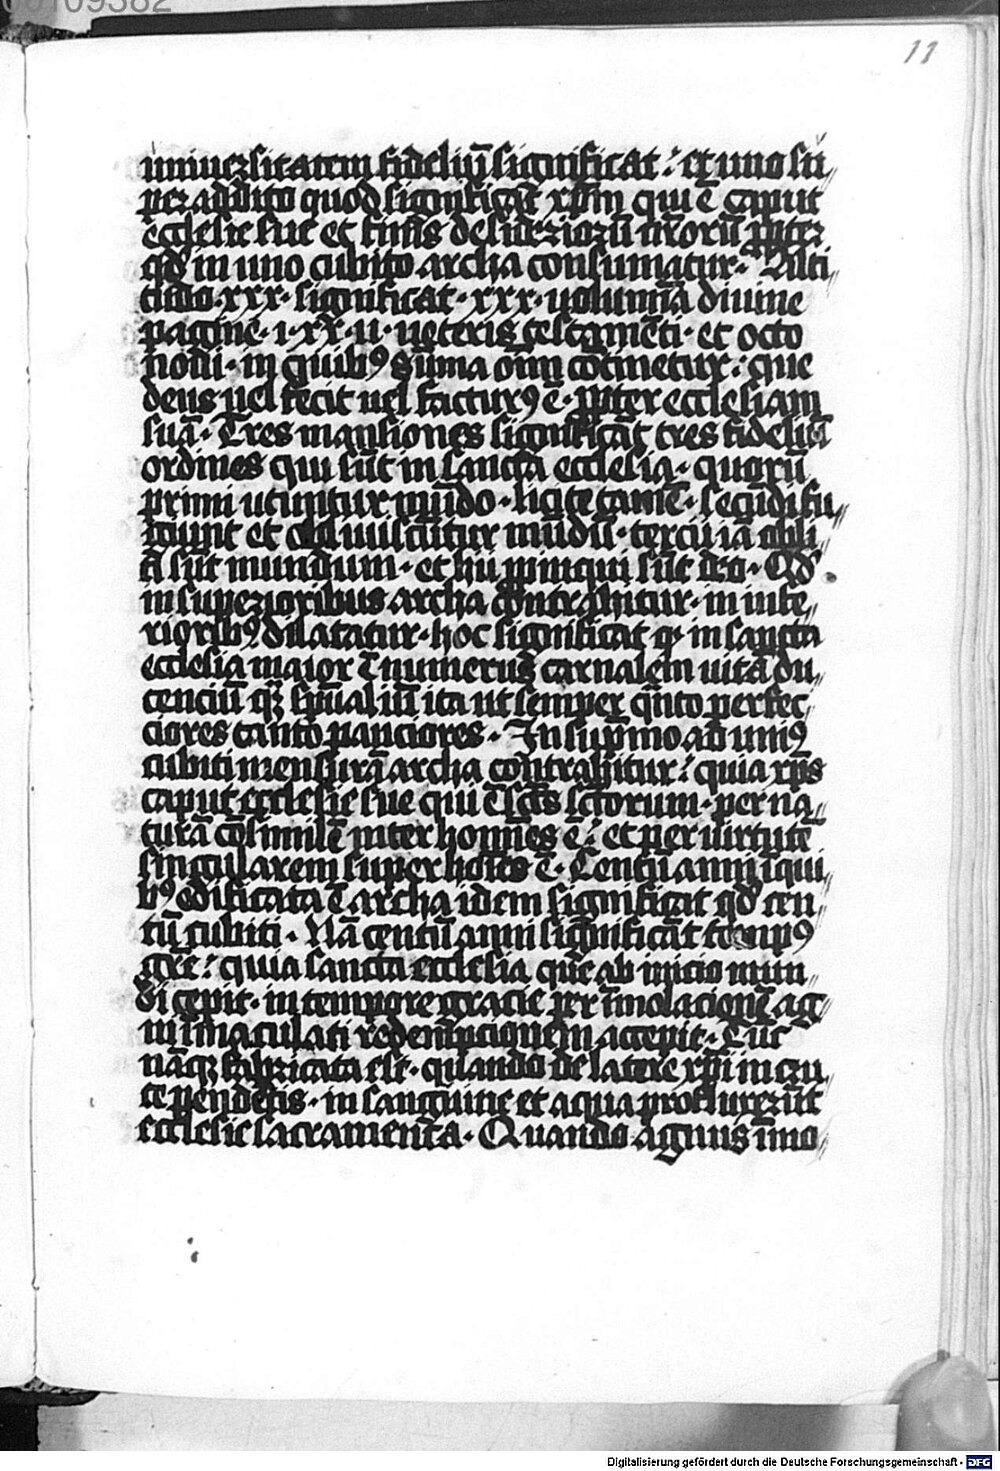 00109382
11
uniuersitatem fideliū significat : et uno su„
per addito quod significat xpm̄ qui ē caput
ecclesie sue et finis desideriorū nr̄orū ppter
qd̓ in uno cubito archa consumatur · Alti„
tudo · xxx · significat · xxx · uolumīa diuine
pagine · i · xx · ii · ueteris testamēti · et octo
noui · in quibꝰ sūma oīm cōtinetur : que
deus uel fecit uel facturꝰ ē · ppter ecclesiam
suā · Tres mansiones significāt tres fideliū
ordines qui sūt in sancta ecclesia · quorū
primi utuntur mūdo · licite tamē · secūdi fu„
giunt et mūdū · tercii iā obli„
ti sūt mundum · et hii ppinqui sūt deo · Qd̓
in superioribus archa contrahitur · in infe„
rioribꝰ dilatatur · hoc significat qꝛ in sancta
ecclesia maior ē numerus carnalem uitā du„
cenciū qꝫ spūaliū ita ut semper q̄nto perfec„
ciores tanto pauciores · In supmo ad uniꝰ
cubiti mensurā archa contrahitur : quia xp̄s
caput ecclesie sue qui ē sc̄s sc̄torum · per na„
turā cōsimilē inter homines ē : et per uirtutē
singularem super hoīes ē · Centū anni ī qui„
bꝰ edificata ē archa idem significat qd̓ cen„
tū cubiti · Nā centū anni significāt tempꝰ
gr̄e : quia sancta ecclesia que ab inicio mun„
di cepit · in tempore gracie per īmolacionē ag„
ni īmaculati redempcionem accepit · Tūc
nāqꝫ fabricata est · quando de latere xpī in cru„
ce pendētis · in sanguine et aqua profluxerūt
ecclesie sacramenta · Quando agnus īmo„
Digitalisierung gefördert durch die Deutsche Forschungsgemeinschaft - DFG